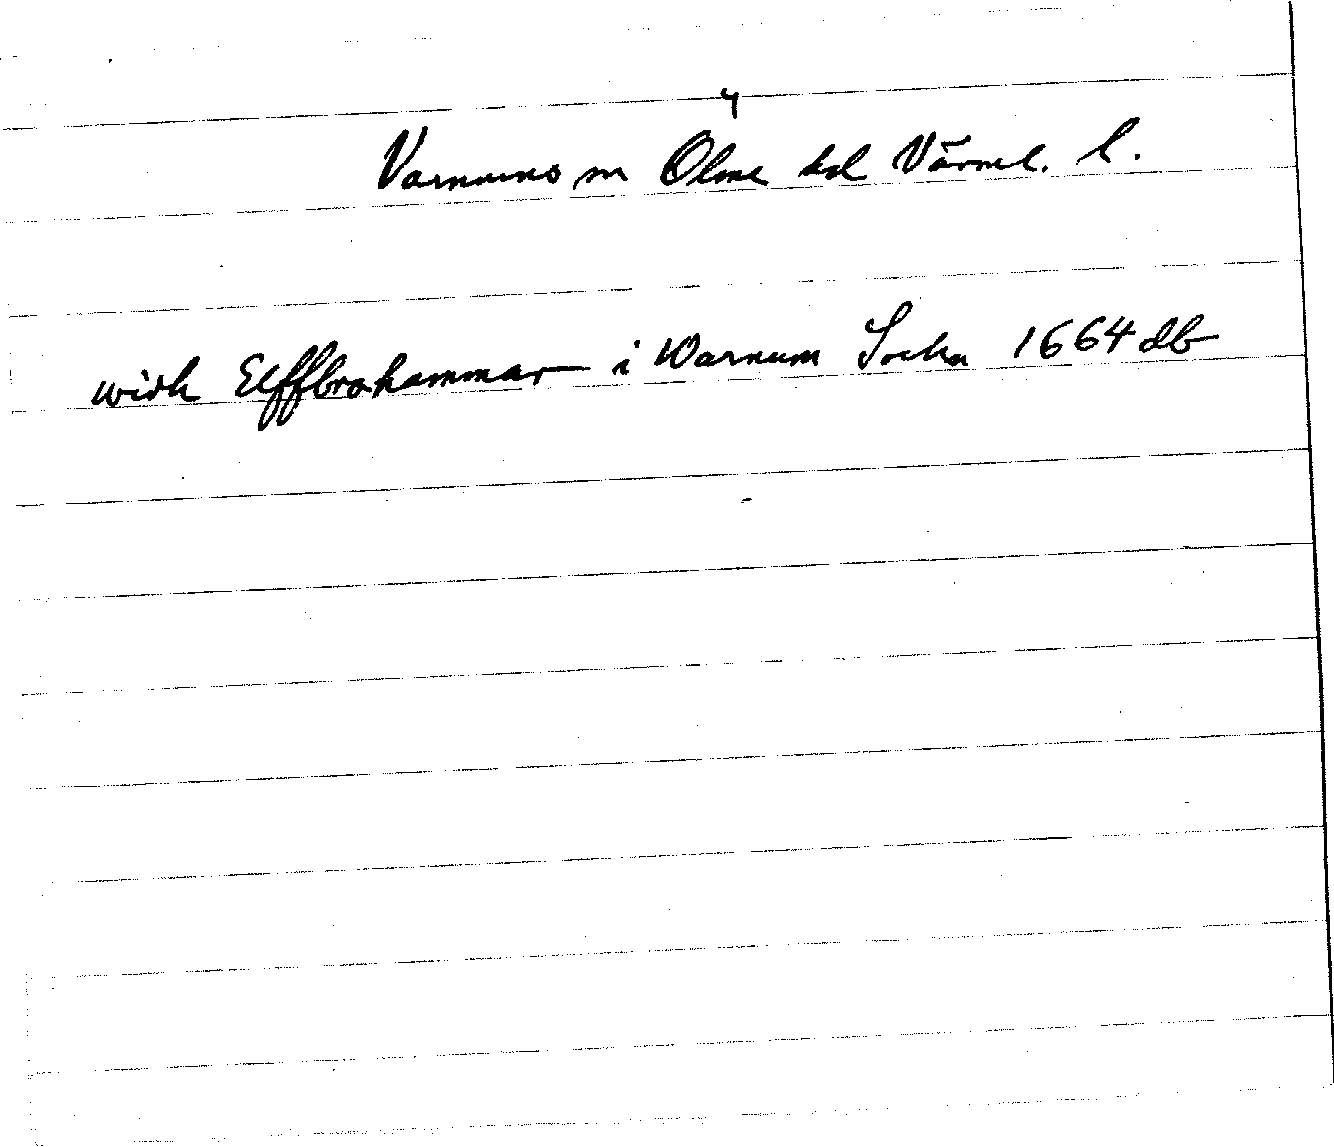 4
Varnums sn Ölme hd Värml. l.
widh Elffbrohammar i Warnum Sochn 1664 db